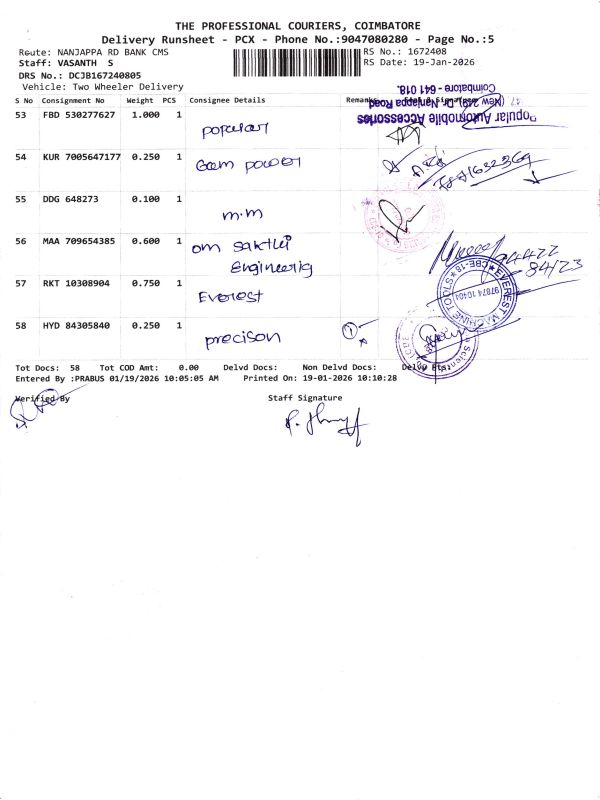 THE PROFESSIONAL COURIERS, COIMBATORE
Delivery Runsheet - PCX - Phone No.:9047080280 - Page No.:5
Route: NANJAPPA RD BANK CMS RS No.: 1672408
Staff: VASANTH S RS Date: 19-Jan-2026
DRS No.: DCJB167240805
Vehicle: Two Wheeler Delivery
S No Consignment No Weight PCS Consignee Details Remarks
Popular Automobile Accessories
(New 249) Dr. Nanjappa Road
Coimbatore - 641 018.
53 FBD 530277627 1.000 1 popular
54 KUR 7005647177 0.250 1 Gem power
55 DDG 648273 0.100 1 m.m
56 MAA 709654385 0.600 1 om sakthi
Engineerig
94422
84123
57 RKT 10308904 0.750 1 Everest
EVEREST MACHINE TO
CBE-18
97874 10404
58 HYD 84305840 0.250 1 precison
1
Tot Docs: 58 Tot COD Amt: 0.00 Delvd Docs: Non Delvd Docs: Delvd Pts:
Entered By :PRABUS 01/19/2026 10:05:05 AM Printed On: 19-01-2026 10:10:28
Verified By Staff Signature